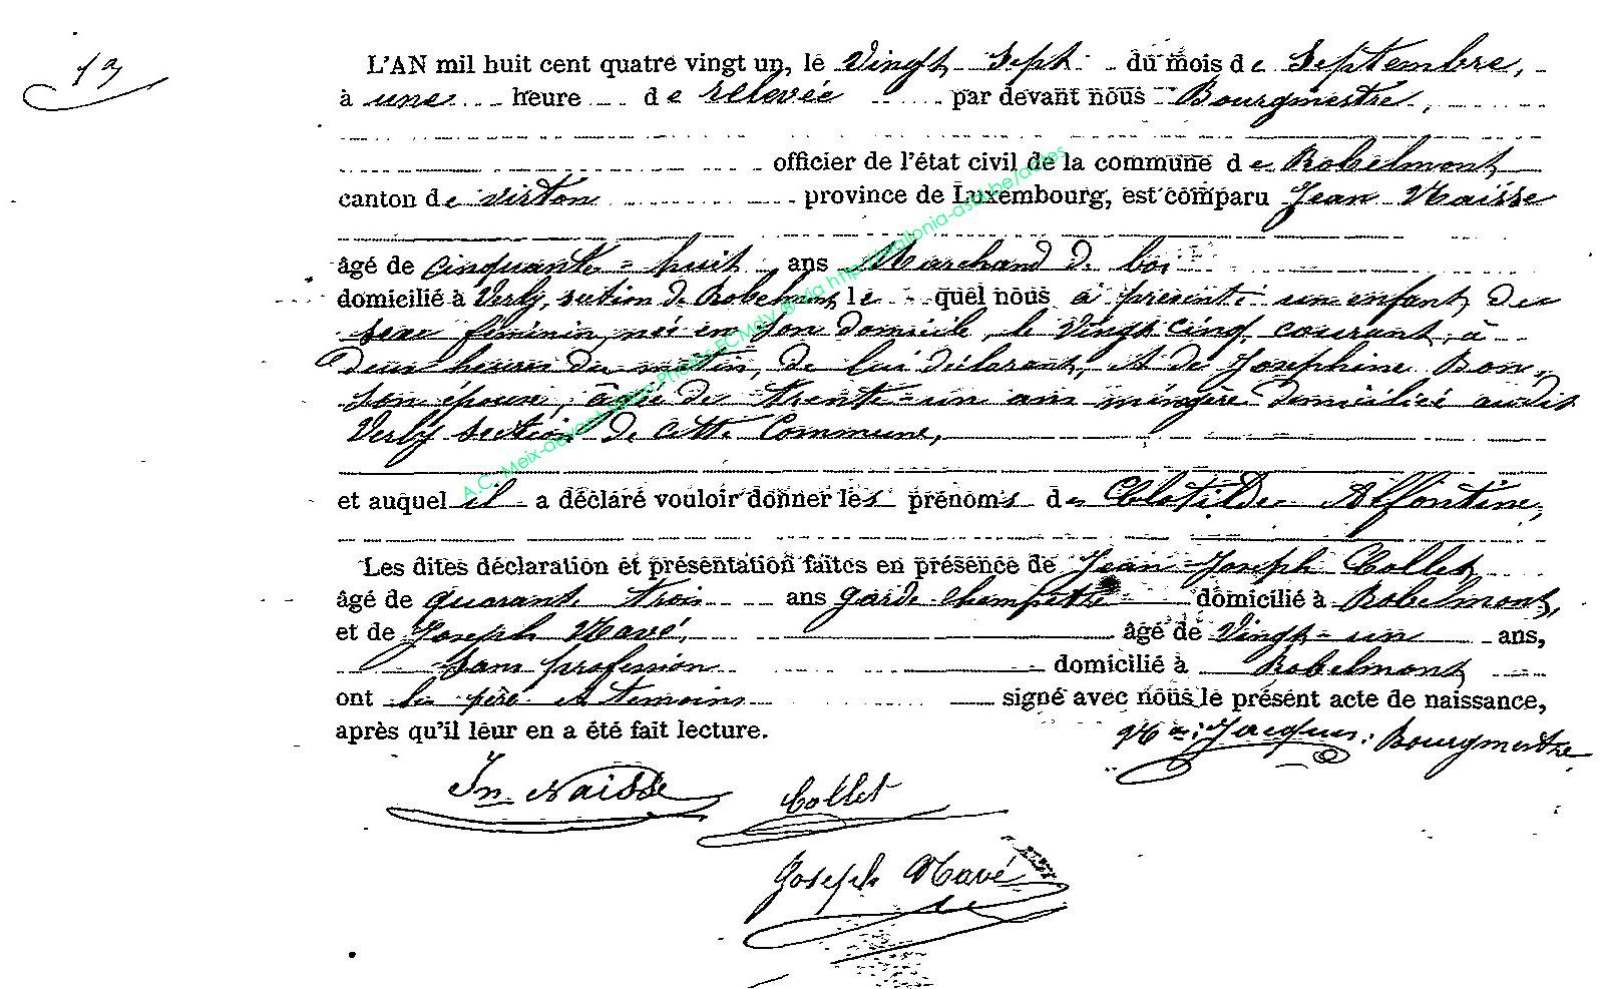 13
L'AN mil huit cent quatre vingt un, le Vingt Sept du mois de Septembre,
à une heure de relevée par devant nous Bourgmestre,
officier de l'état civil de la commune de Robelmont
canton de Virton province de Luxembourg, est comparu Jean Naisse
âgé de cinquante-huit ans Marchand de boi
domicilié à Verly, section de Robelmont, le quel nous a présenté un enfant du
sexe féminin, née en son domicile, le Vingt cinq courant, à
Deux heures du matin, de lui déclarant, et de Josephine Bon,
son épouse, âgée de trente-un ans ménagère domiciliée audit
Verly section de cette Commune,
et auquel il a déclaré vouloir donner les prénoms de Clotilde Alfontine,
Les dites déclaration et présentation faites en présence de Jean-Joseph Collet
âgé de quarante trois ans garde champêtre domicilié à Robelmont,
et de Joseph Mavé, âgé de Vingt-un ans,
sans profession domicilié à Robelmont
ont le père et temoins signé avec nous le présent acte de naissance,
après qu'il leur en a été fait lecture.
Jacques: Bourgmestre
Jn. Naisse Collet
Joseph Mavé
A.C. Meix-devant-Virton